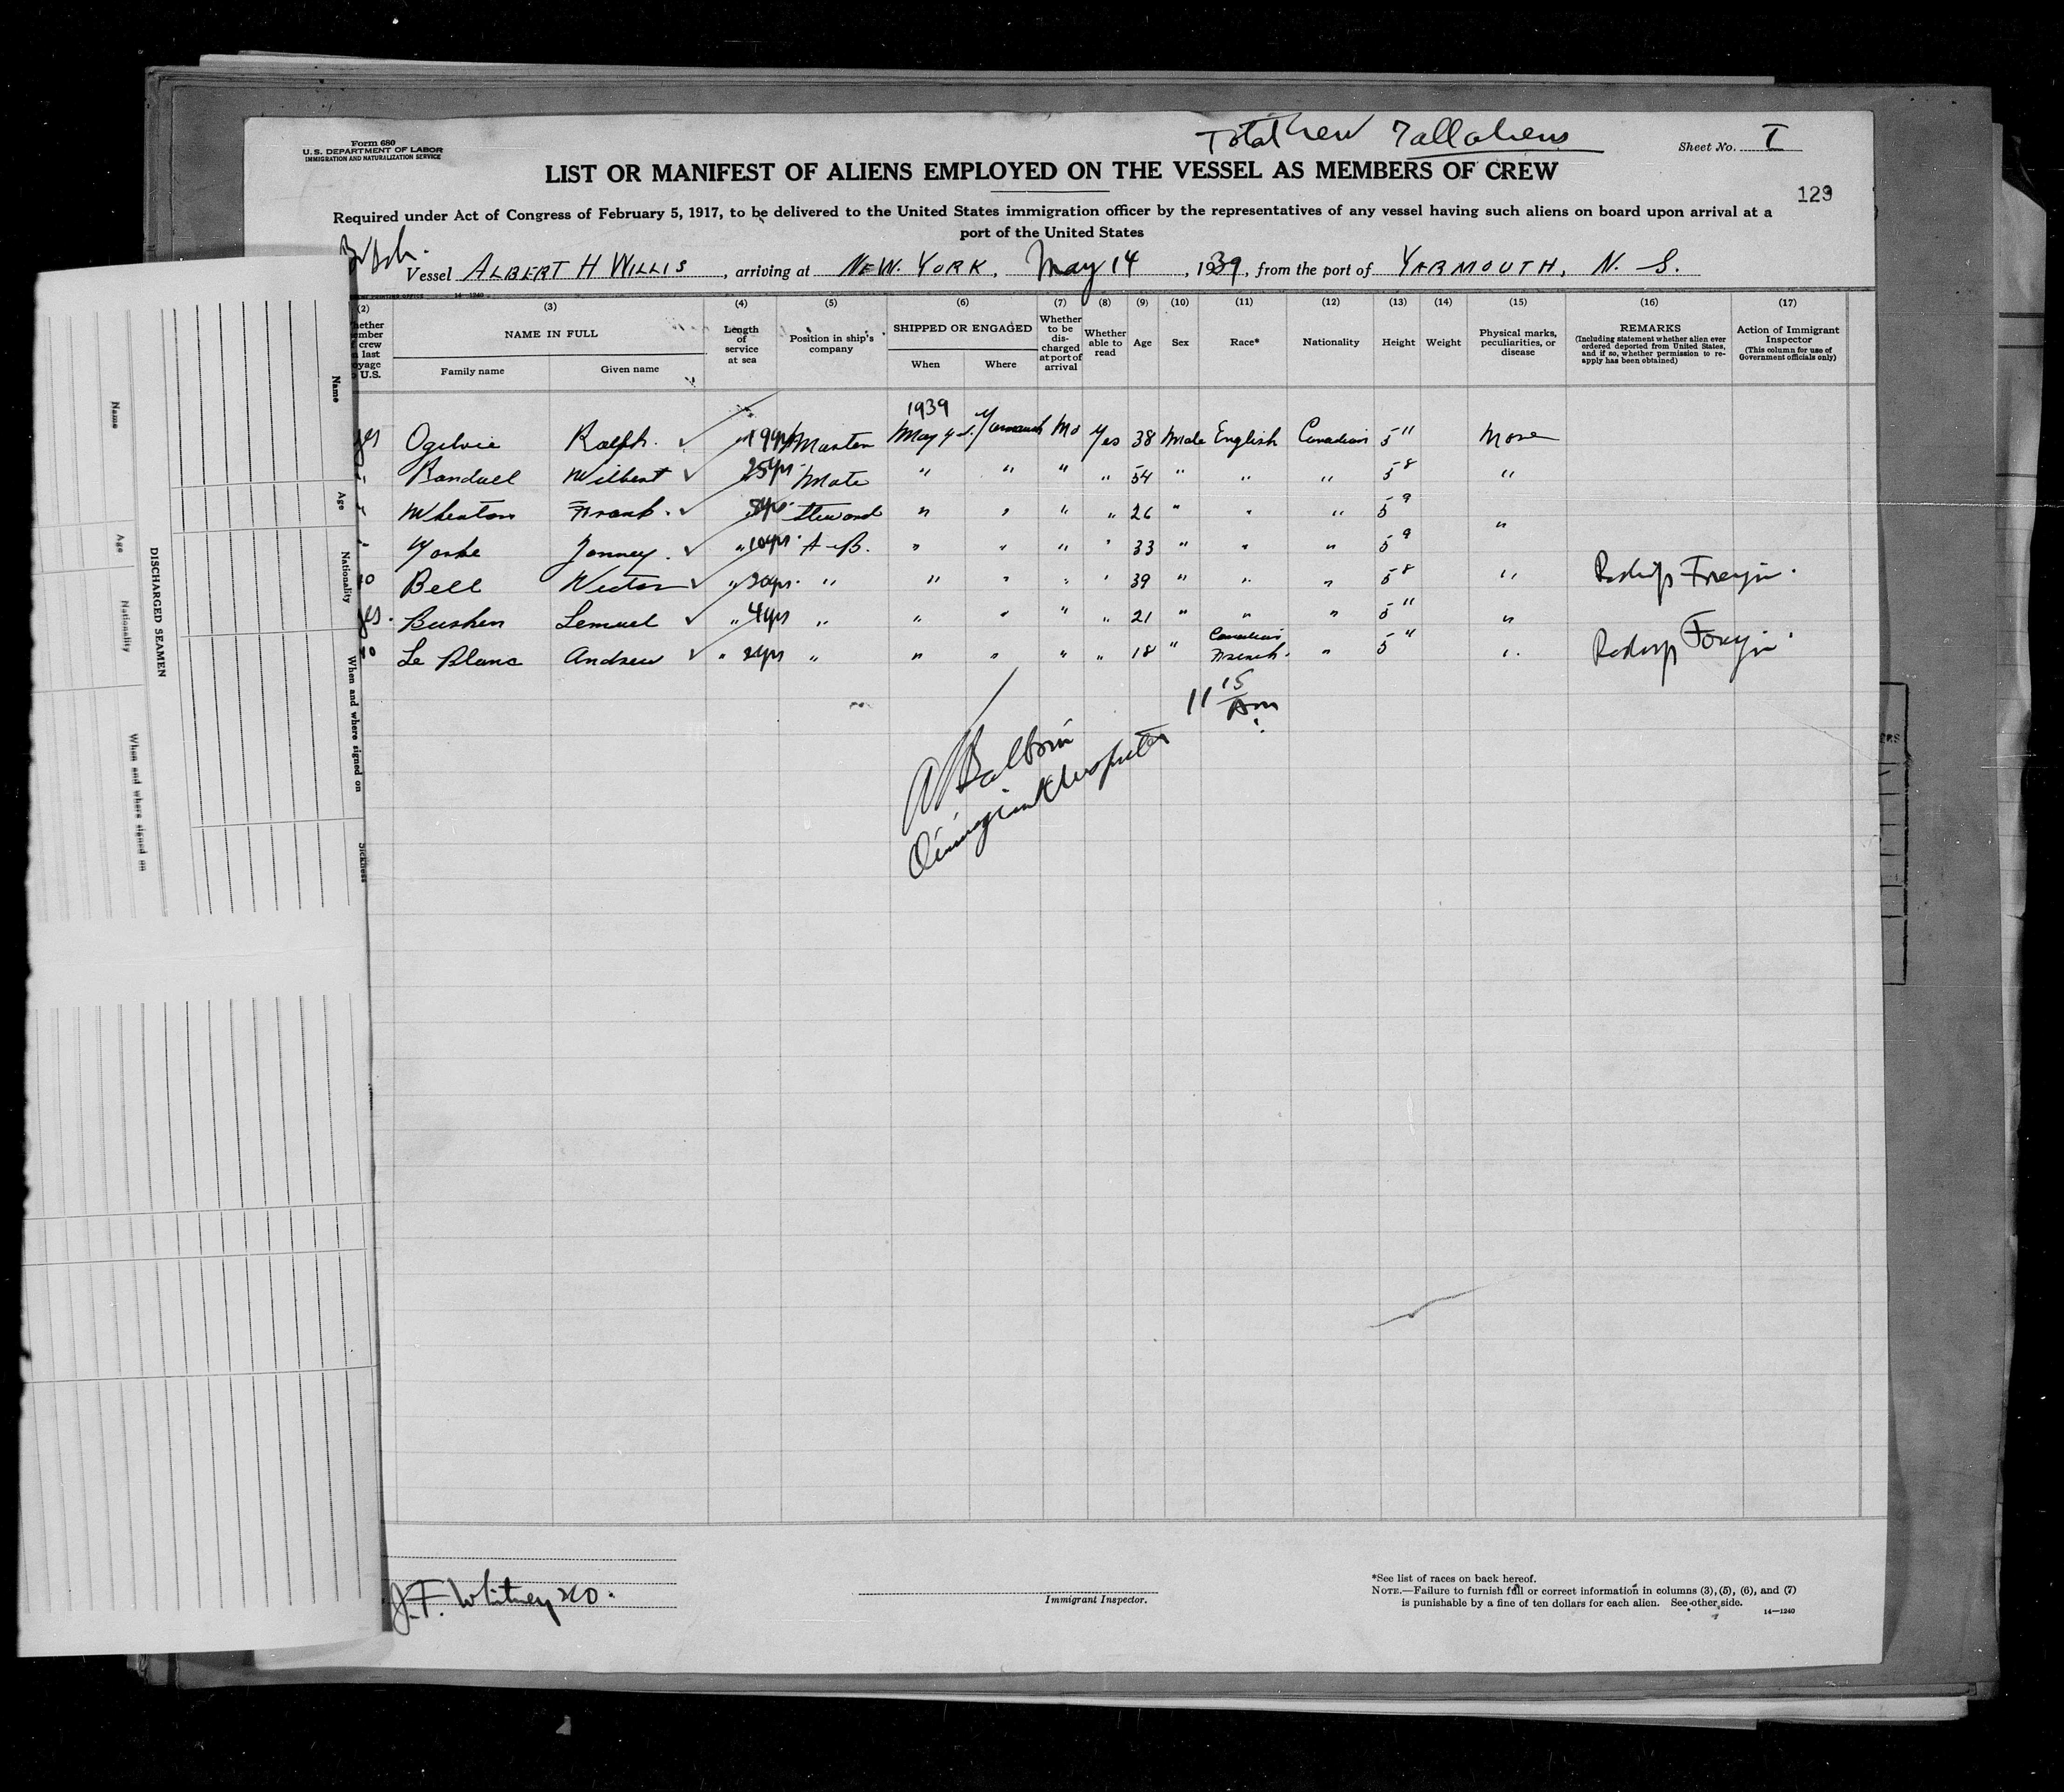 Total Crew 7 all aliens
Form 680
U. S. DEPARTMENT OF LABOR
IMMIGRATION AND NATURALIZATION SERVICE
Sheet No. I
LIST OR MANIFEST OF ALIENS EMPLOYED ON THE VESSEL AS MEMBERS OF CREW
129
Required under Act of Congress of February 5, 1917, to be delivered to the United States immigration officer by the representatives of any vessel having such aliens on board upon arrival at a
port of the United States
Vessel ALBERT H WILLIS, arriving at NEW. YORK, May 14, 1939, from the port of YARMOUTH, N. S.
(2) (3) (4) (5) (6) (7) (8) (9) (10) (11) (12) (13) (14) (15) (16) (17)
NAME IN FULL
Family name Given name
Length of service at sea
Position in ship's company
SHIPPED OR ENGAGED
When Where
Whether to be discharged at port of arrival
Whether able to read
Age
Sex
Race*
Nationality
Height
Weight
Physical marks, peculiarities, or disease
REMARKS
(Including statement whether alien ever ordered deported from United States, and if so, whether permission to re-apply has been obtained)
Action of Immigrant Inspector
(This column for use of Government officials only)
1939
yes Ogilvie Ralph. 19 yrs Master May 4 Yarmouth No Yes 38 Male English Canadian 5 11 None
" Randuel Wilbert 25 yrs. Mate " " " " 54 " " " 5 8 "
" Wheaton Frank. yrs. Steward " " " " 26 " " " 5 9 "
" Yorke 10 yrs. A-B. " " " " 33 " " " 5 9
no Bell Victor " 20 yrs. " " " " " 39 " " " 5 8 "
yes. Bushen Lemuel " 4 yrs " " " " " 21 " " " 5 11 "
no Le Blanc Andrew " 2 yrs " " " " " 18 " Canadian French. " 5 "
11 15 Am
Immigrant Inspector
J. F. Whitney & Co.
Immigrant Inspector.
*See list of races on back hereof.
NOTE.—Failure to furnish full or correct information in columns (3), (5), (6), and (7)
is punishable by a fine of ten dollars for each alien. See other side.
14—1240
DISCHARGED SEAMEN
Name
Age
Nationality
When and where signed on
Sickness
Name
Age
Nationality
When and where signed on